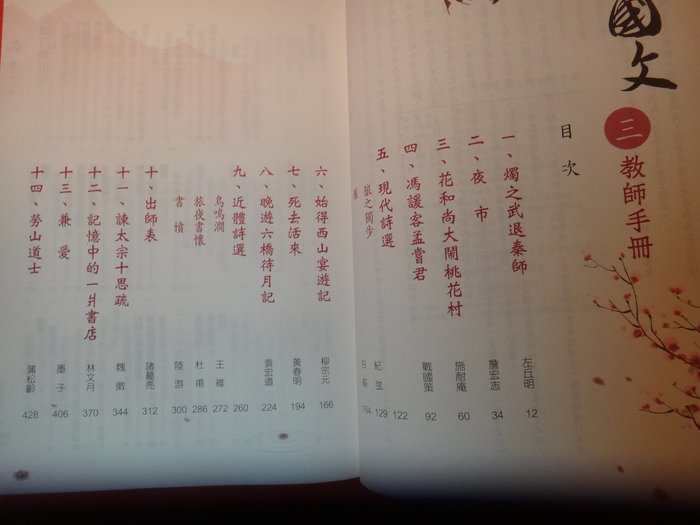 國文
三 教師手冊
目次
一、燭之武退秦師 左丘明 12
二、夜市 詹宏志 34
三、花和尚大鬧桃花村 施耐庵 60
四、馮諼客孟嘗君 戰國策 92
五、現代詩選 122
狼之獨步 紀弦 129
雁 白萩 154
六、始得西山宴遊記 柳宗元 166
七、死去活來 黃春明 194
八、晚遊六橋待月記 袁宏道 224
九、近體詩選 260
鳥鳴澗 王維 272
旅夜書懷 杜甫 286
書憤 陸游 300
十、出師表 諸葛亮 312
十一、諫太宗十思疏 魏徵 344
十二、記憶中的一爿書店 林文月 370
十三、兼愛 墨子 406
十四、勞山道士 蒲松齡 428